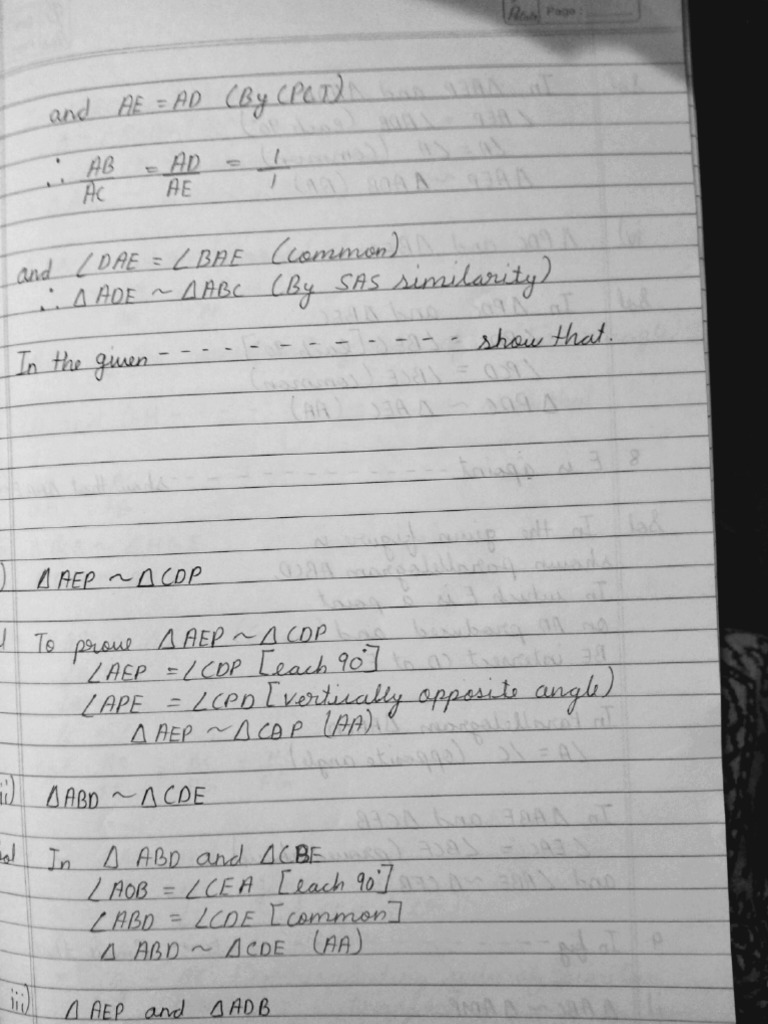 Page :
and AE = AD (By CPCT)
∴ AB/AC = AD/AE = 1/1
and ∠DAE = ∠BAE (common)
∴ △ADE ~ △ABC (By SAS similarity)
In the given - - - - - - - - - - - show that.
) △AEP ~ △CDP
To prove △AEP ~ △CDP
∠AEP = ∠CDP [each 90°]
∠APE = ∠CPD [vertically opposite angle)
△AEP ~ △CDP (AA)
ii) △ABD ~ △CDE
In △ABD and △CBE
∠AOB = ∠CEA [each 90°]
∠ABD = ∠CDE [common]
△ABD ~ △CDE (AA)
iii) △AEP and △ADB